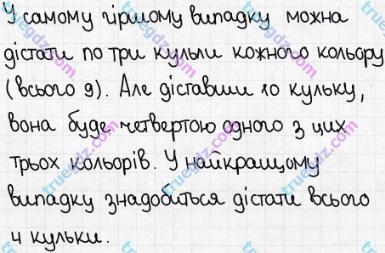 У самому гіршому випадку можна
дістати по три кульки кожного кольору
(всього 9). Але діставши 10 кульку,
вона буде четвертою одного з цих
трьох кольорів. У найкращому
випадку знадобиться дістати всього
4 кульки.